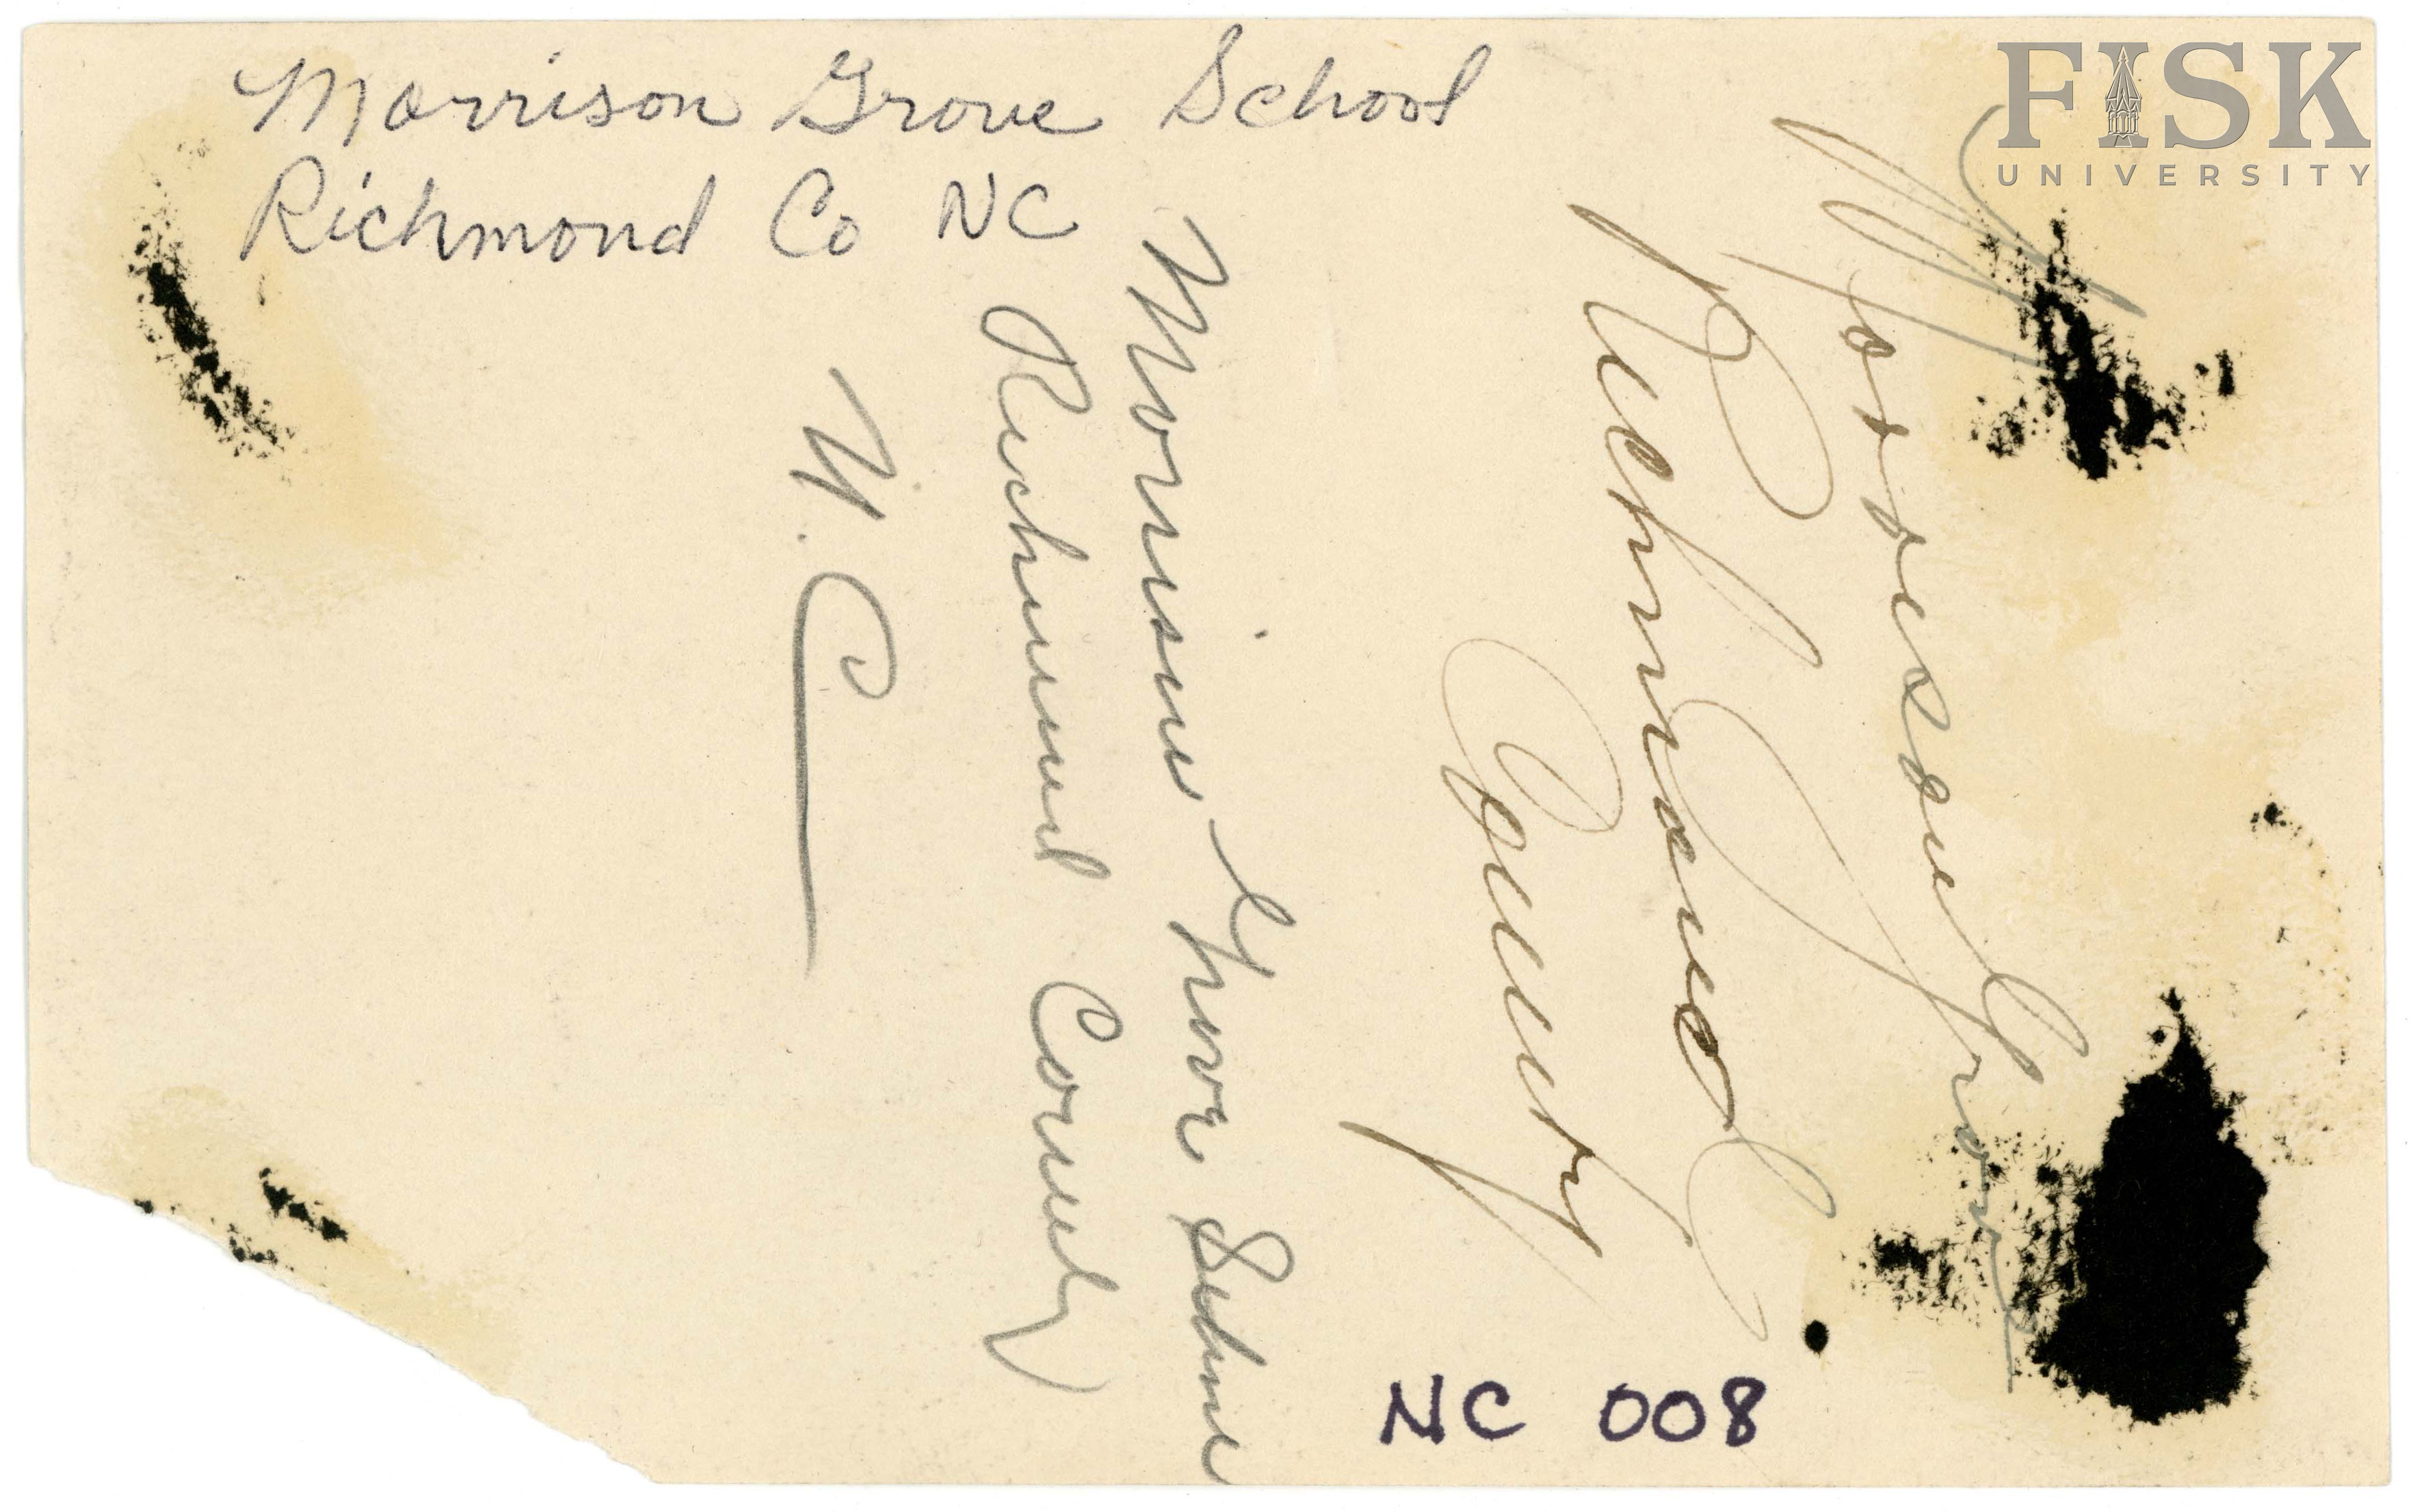 Morrison Grove School
Richmond Co NC
Morrison Grove School
Richmond County
N. C.
Morrison Grove
Richmond
County
NC 008
FISK
UNIVERSITY